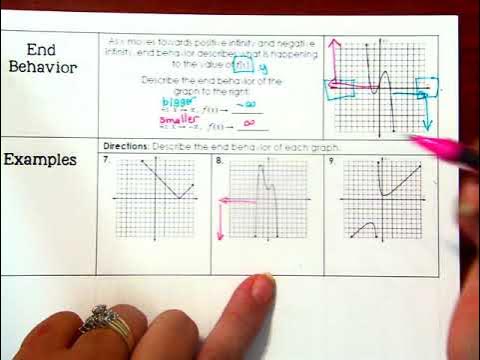 End
Behavior
As x moves towards positive infinity and negative
infinity, end behavior describes what is happening
to the value of f(x). y
Describe the end behavior of the
graph to the right:
bigger
as x → ∞, f(x) → -∞
smaller
as x → -∞, f(x) → ∞
Examples
Directions: Describe the end behavior of each graph.
7.
8.
9.